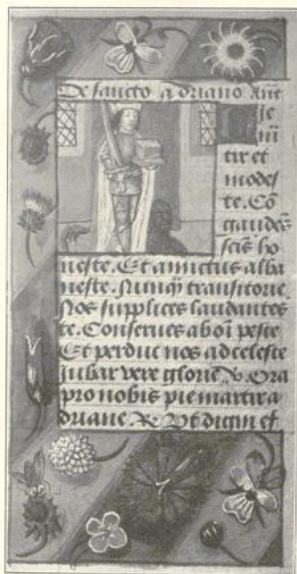 De sancto adriano Ant
ie
m
tir et
modes
te. Co
gaudes
scis ho
neste. Et amictus alba
neste. transitorie
Nos supplices laudantes
te. Conserues ab oi peste
Et perduc nos ad celeste
Iubar vere glorie V. Ora
pro nobis pie martir a
driane R. Vt digni ef